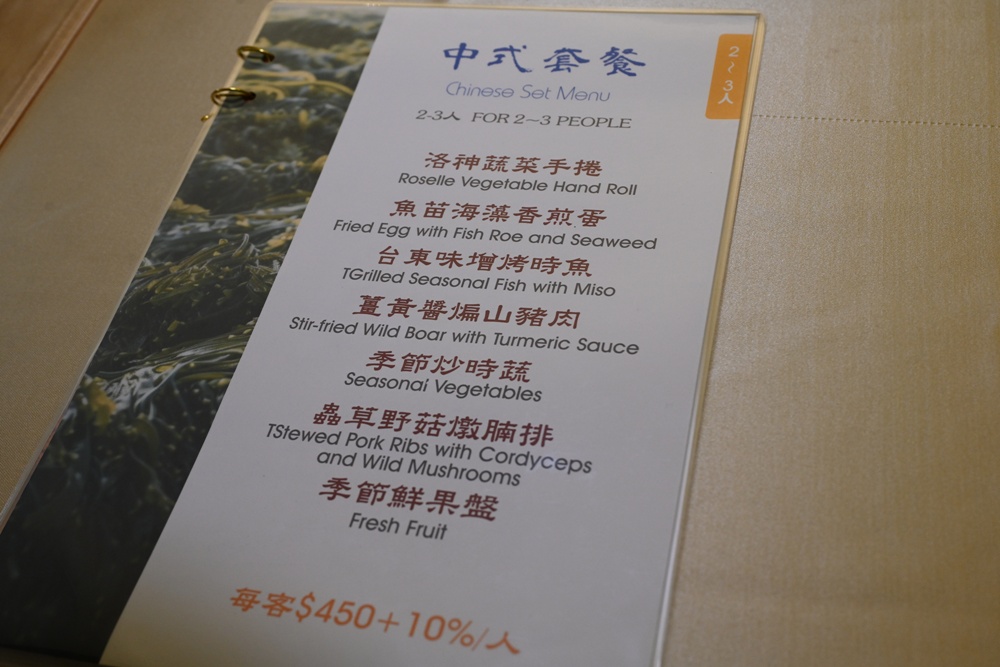 中式套餐
Chinese Set Menu
2-3人 FOR 2~3 PEOPLE
2~3人
洛神蔬菜手捲
Roselle Vegetable Hand Roll
魚苗海藻香煎蛋
Fried Egg with Fish Roe and Seaweed
台東味增烤時魚
TGrilled Seasonal Fish with Miso
薑黃醬煸山豬肉
Stir-fried Wild Boar with Turmeric Sauce
季節炒時蔬
Seasonai Vegetables
蟲草野菇燉腩排
TStewed Pork Ribs with Cordyceps
and Wild Mushrooms
季節鮮果盤
Fresh Fruit
每客$450+10%/人